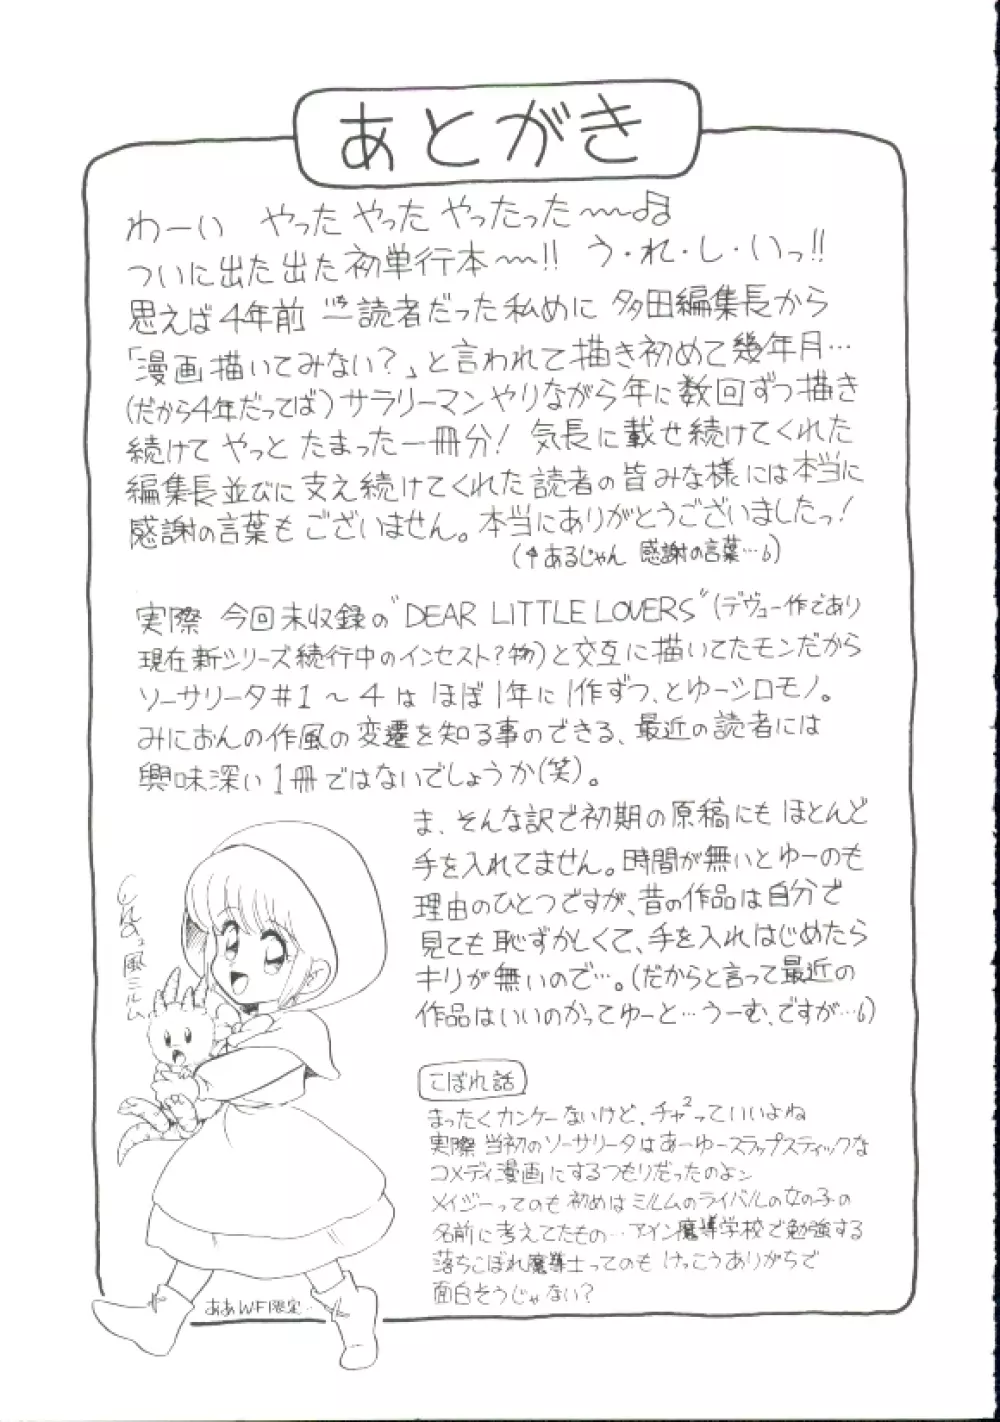 あとがき
わーい やった やった やったった〜〜♫
ついに出た出た初単行本〜〜!! う・れ・し・いっ!!
思えば4年前 一読者だった私めに 多田編集長から
いち
「漫画描いてみない？」と言われて描き初めて幾年月…
(だから4年だってば)サラリーマンやりながら年に数回ずつ描き
続けて やっと たまった一冊分! 気長に載せ続けてくれた
編集長並びに支え続けてくれた読者の皆みな様には本当に
感謝の言葉もございません。本当にありがとうございましたっ!
(↑あるじゃん 感謝の言葉…)
実際 今回未収録の"DEAR LITTLE LOVERS"(デヴュー作であり
現在新シリーズ続行中のインセスト？物)と交互に描いてたモンだから
ソーサリータ#1〜4は ほぼ1年に1作ずつ、とゆーシロモノ。
みにおんの作風の変遷を知る事のできる、最近の読者には
興味深い1冊ではないでしょうか(笑)。
ま、そんな訳で初期の原稿にも ほとんど
手を入れてません。時間が無いとゆーのも
理由のひとつですが、昔の作品は自分で
見ても恥ずかしくて、手を入れはじめたら
キリが無いので…。(だからと言って最近の
作品はいいのかってゆーと…うーむ、ですが…)
こぼれ話
まったくカンケーないけど、チャ²っていいよね
実際 当初のソーサリータはあーゆースラップスティックな
コメディ漫画にするつもりだったのよン
メイジーってのも 初めは ミルムのライバルの女の子の
名前に考えてたもの… アイン魔導学校で勉強する
落ちこぼれ魔導士ってのも けっこうありがちで
面白そうじゃない？
風ミルム
ああWF限定…